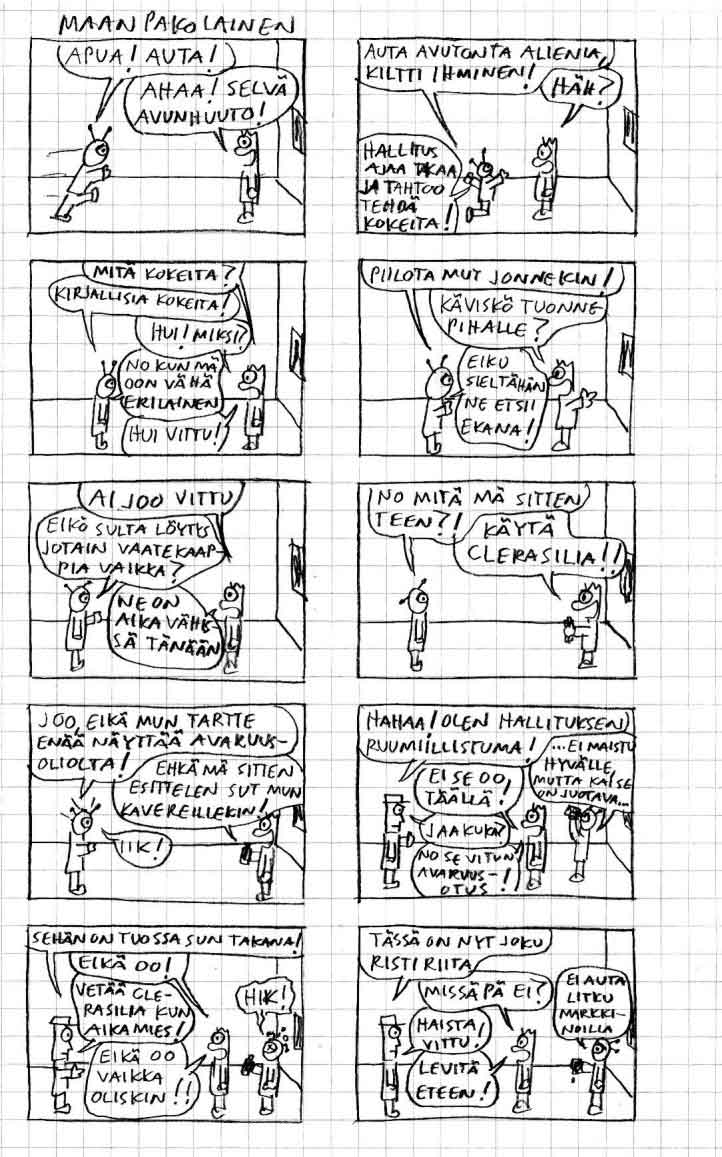 MAAN PAKOLAINEN
APUA! AUTA!
AHAA! SELVÄ
AVUNHUUTO!
AUTA AVUTONTA ALIENIA,
KILTTI IHMINEN!
HÄH?
HALLITUS
AJAA TAKAA
JA TAHTOO
TEHDÄ
KOKEITA!
MITÄ KOKEITA?
KIRJALLISIA KOKEITA!
HUI! MIKSI?
NO KUN MÄ
OON VÄHÄ
ERILAINEN
HUI VITTU!
PIILOTA MUT JONNEKIN!
KÄVISKÖ TUONNE
PIHALLE?
EIKU
SIELTÄHÄN
NE ETSII
EKANA!
AI JOO VITTU
EIKÖ SULTA LÖYTYS
JOTAIN VAATEKAAP-
PIA VAIKKA?
NE ON
AIKA VÄHIS-
SÄ TÄNÄÄN
NO MITÄ MÄ SITTEN
TEEN?!
KÄYTÄ
CLERASILIA!!
JOO, EIKÄ MUN TARTTE
ENÄÄ NÄYTTÄÄ AVARUUS-
OLIOLTA!
EHKÄ MÄ SITTEN
ESITTELEN SUT MUN
KAVEREILLEKIN!
IIK!
HAHAA! OLEN HALLITUKSEN
RUUMIILLISTUMA!
...EI MAISTU
HYVÄLLE,
MUTTA KAI SE
ON JUOTAVA...
EI SE OO
TÄÄLLÄ!
JAA KUKA?
NO SE VITUN
AVARUUS-
OTUS!
SEHÄN ON TUOSSA SUN TAKANA!
EIKÄ OO!
VETÄÄ CLE-
RASILIA KUN
AIKAMIES!
HIK!
EIKÄ OO
VAIKKA
OLISKIN!!
TÄSSÄ ON NYT JOKU
RISTIRIITA
MISSÄ PÄ EI?
EI AUTA
LITKU
MARKKI-
NOILLA
HAISTA
VITTU!
LEVITÄ
ETEEN!